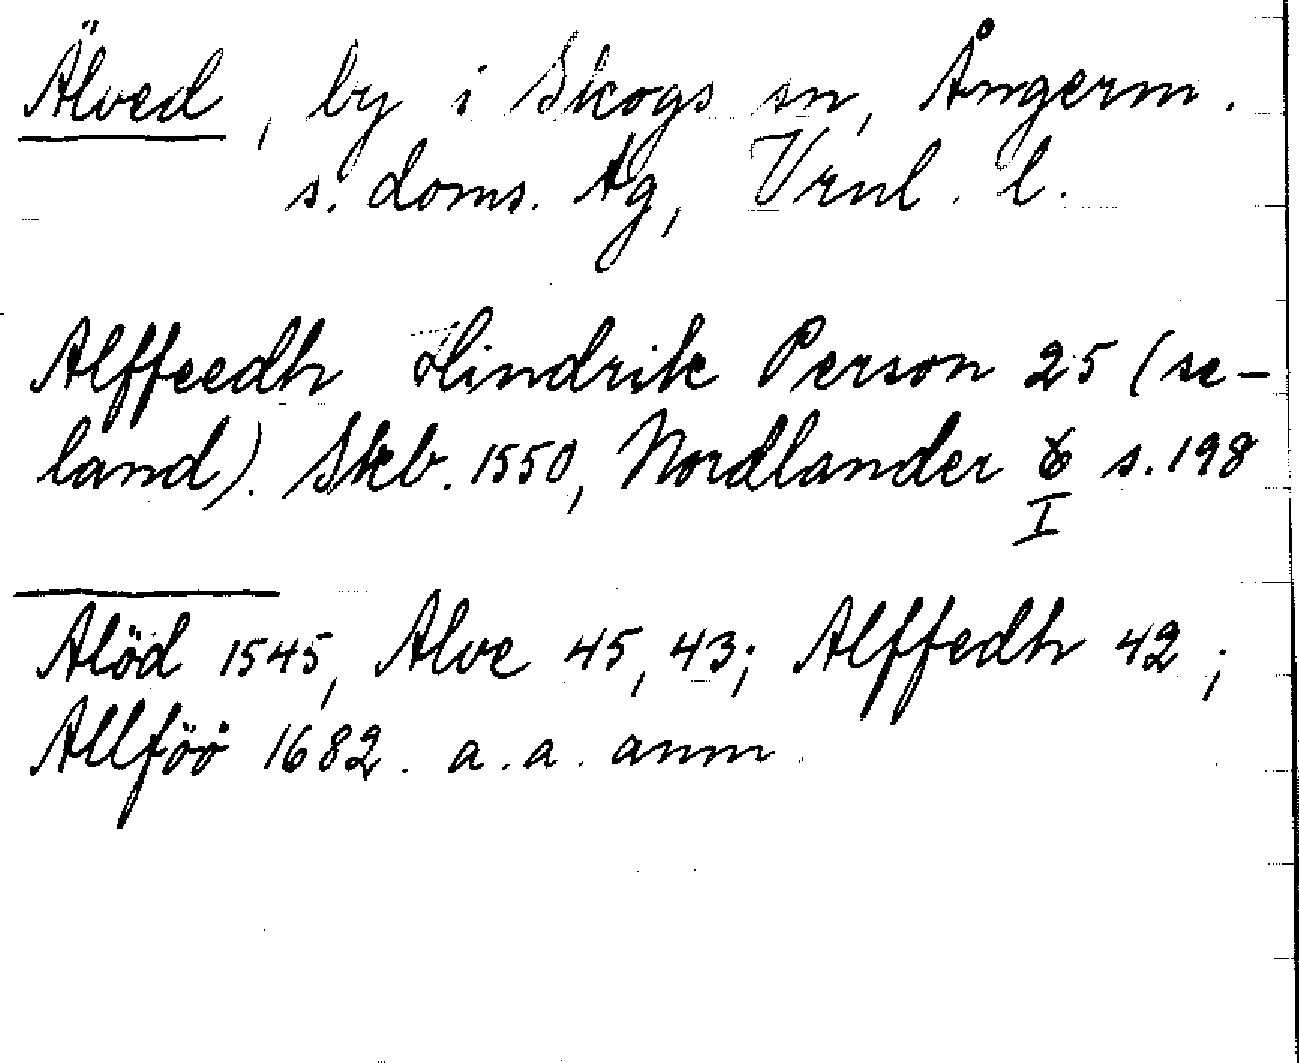 Älved, by i Skogs sn, Ångerm.
s. doms. tg, Vrnl. l.
Alffeedh Hindrik Person 25 (se-
land). Skb. 1550, Nordlander 6 s. 198
I
Alöd 1545, Alve 45, 43; Alffedh 42;
Allföö 1682. a.a. anm